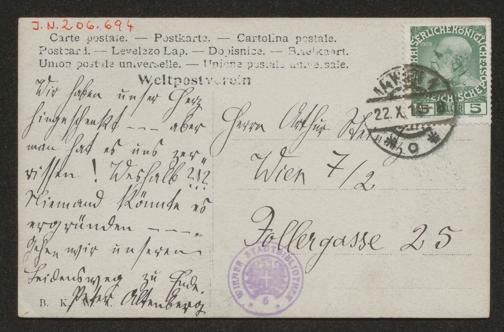 J.N.206.694
Carte postale. — Postkarte. — Cartolina postale.
Postcard. — Levelezo Lap. — Dopisnice. — Briefkaart.
Union postale universelle. — Unione postale universale.
Weltpostverein
Wir haben unser Herz
hingeschenkt — — aber
man hat es uns zer-
rissen! Weshalb?!?
Niemand könnte es
ergründen — — —.
Gehen wir unseren
Leidensweg zu Ende.
Peter Altenberg
B. K.
Herrn Arthur
Wien 7/2
Zollergasse 25
22. X.
5
WIENER STADTBIBLIOTHEK